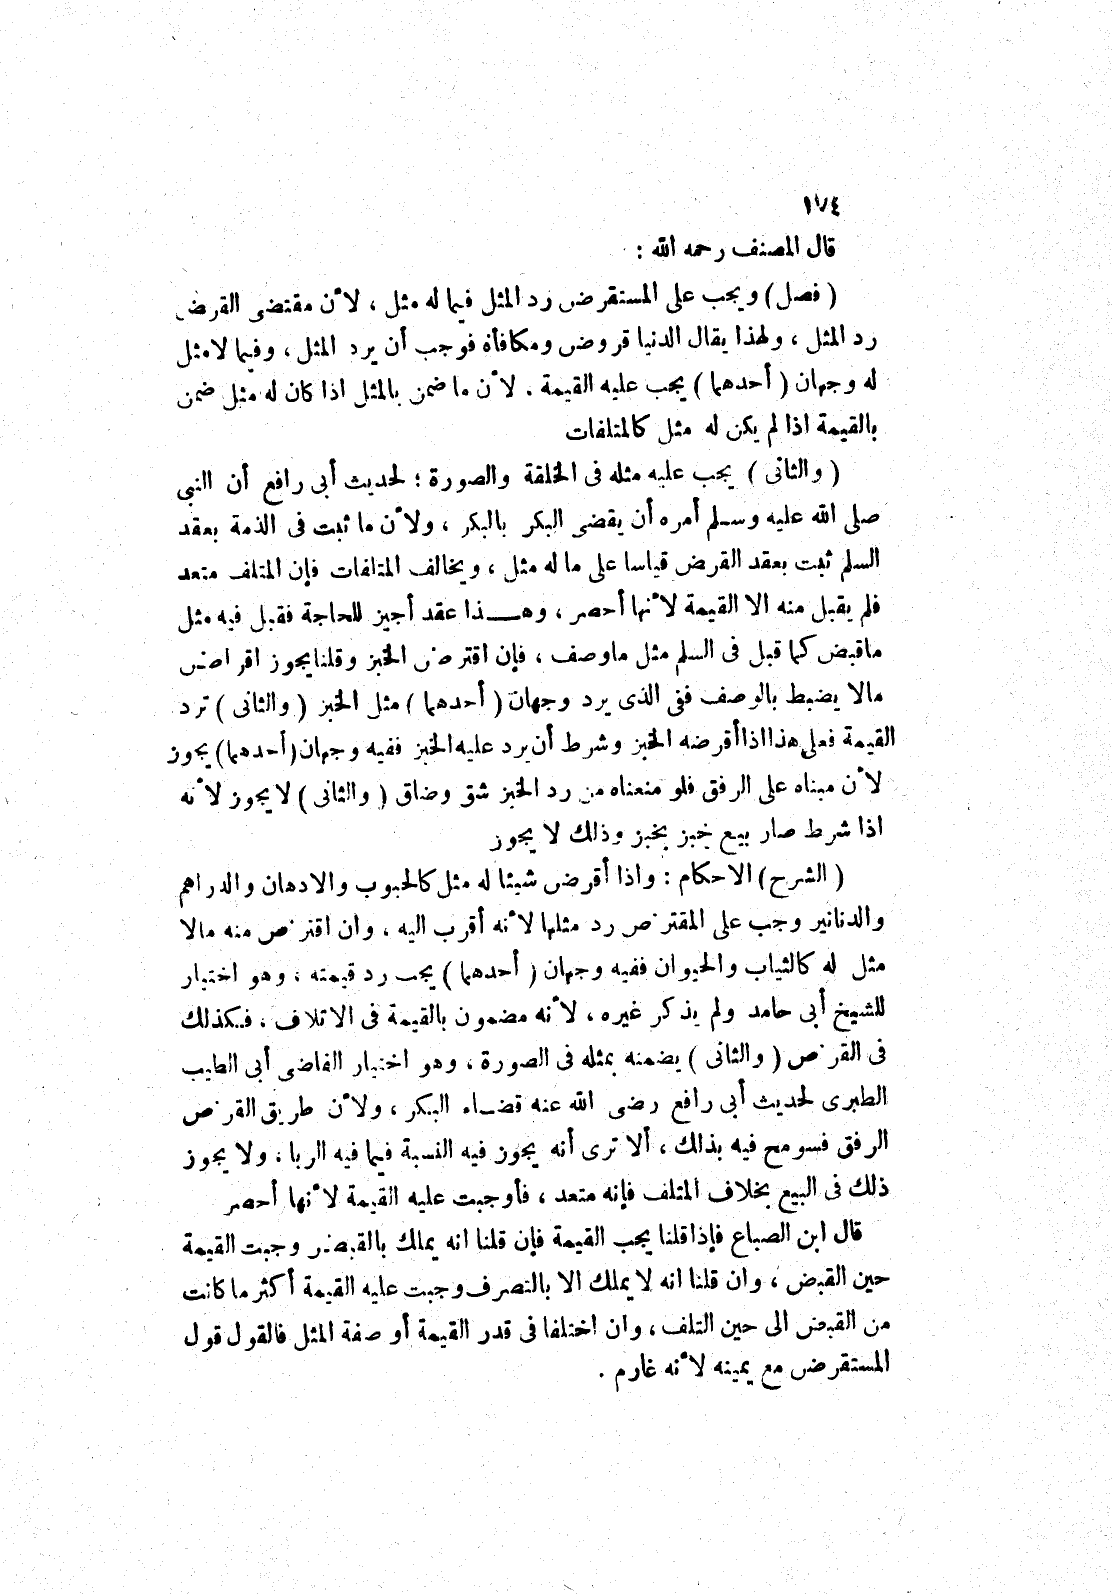 ١٧٤
قال المصنف رحمه الله :
( فصل ) ويجب على المستقرض رد المثل فيما له مثل ، لأن مقتضى القرض
رد المثل ، ولهذا يقال الدنيا قروض ومكافأة فوجب أن يرد المثل ، وفيما لا مثل
له وجهان ( أحدهما ) يجب عليه القيمة . لأن ما ضمن بالمثل اذا كان له مثل ضمن
بالقيمة اذا لم يكن له مثل كالمتلفات
( والثانى ) يجب عليه مثله فى الخلقة والصورة ؛ لحديث أبى رافع أن النبى
صلى الله عليه وسلم أمره أن يقضى البكر بالبكر ، ولأن ما ثبت فى الذمة بعقد
السلم ثبت بعقد القرض قياسا على ما له مثل ، ويخالف المتلفات فإن المتلف متعد
فلم يقبل منه الا القيمة لأنها أحصر ، وهذا عقد أجيز للحاجة فقبل فيه مثل
ماقبض كما قبل فى السلم مثل ماوصف ، فإن اقترض الخبز وقلنا يجوز اقراض
مالا يضبط بالوصف ففى الذى يرد وجهان ( أحدهما ) مثل الخبز ( والثانى ) ترد
القيمة فعلى هذا اذا أقرضه الخبز وشرط أن يرد عليه الخبز ففيه وجهان (أحدهما) يجوز
لأن مبناه على الرفق فلو منعناه من رد الخبز شق وضاق ( والثانى ) لا يجوز لأنه
اذا شرط صار بيع خبز بخبز وذلك لا يجوز
( الشرح ) الاحكام : واذا أقرض شيئا له مثل كالحبوب والادهان والدراهم
والدنانير وجب على المقترض رد مثلها لأنه أقرب اليه ، وان اقترض منه مالا
مثل له كالثياب والحيوان ففيه وجهان ( أحدهما ) يجب رد قيمته ، وهو اختيار
للشيخ أبى حامد ولم يذكر غيره ، لأنه مضمون بالقيمة فى الاتلاف ، فكذلك
فى القرض ( والثانى ) يضمنه بمثله فى الصورة ، وهو اختيار القاضى أبى الطيب
الطبرى لحديث أبى رافع رضى الله عنه قضاء البكر ، ولأن طريق القرض
الرفق فسومح فيه بذلك ، ألا ترى أنه يجوز فيه النسبة فيما فيه الربا ، ولا يجوز
ذلك فى البيع بخلاف المتلف فإنه متعد ، فأوجبت عليه القيمة لأنها أحصر
قال ابن الصباغ فإذا قلنا يجب القيمة فإن قلنا انه يملك بالقبض وجبت القيمة
حين القبض ، وان قلنا انه لا يملك الا بالتصرف وجبت عليه القيمة أكثر ما كانت
من القبض الى حين التلف ، وان اختلفا فى قدر القيمة أو صفة المثل فالقول قول
المستقرض مع يمينه لأنه غارم .